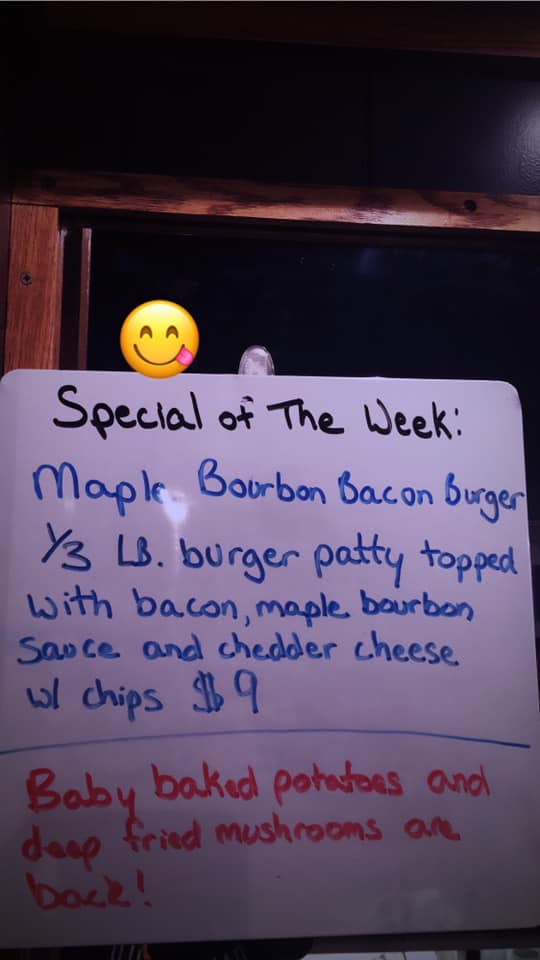 Special of The Week:
Maple Bourbon Bacon Burger
1/3 LB. burger patty topped
with bacon, maple bourbon
sauce and chedder cheese
w/ chips $9
Baby baked potatoes and
deep fried mushrooms are
back!